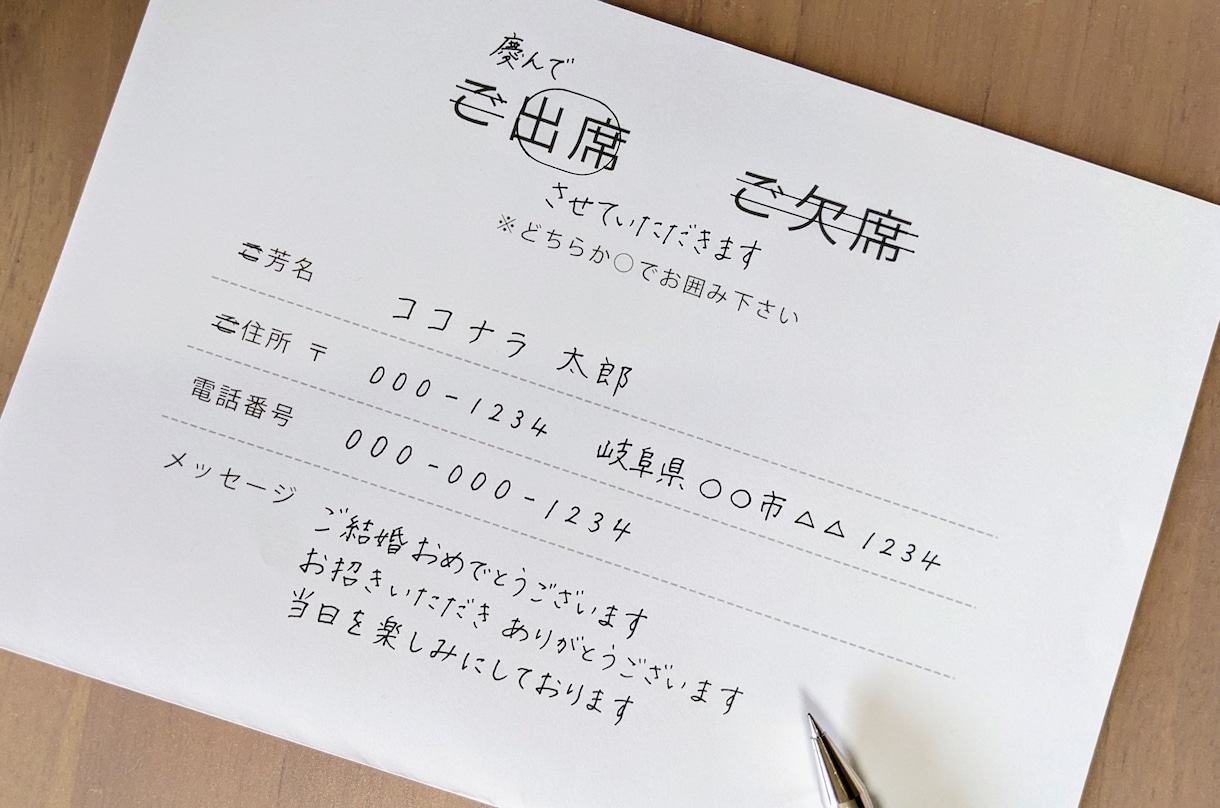 慶んで
ご出席 ご欠席
させていただきます
※どちらか○でお囲み下さい
ご芳名 ココナラ 太郎
ご住所 〒 000-1234 岐阜県 ○○市 △△ 1234
電話番号 000-000-1234
メッセージ
ご結婚おめでとうございます
お招きいただき ありがとうございます
当日を楽しみにしております